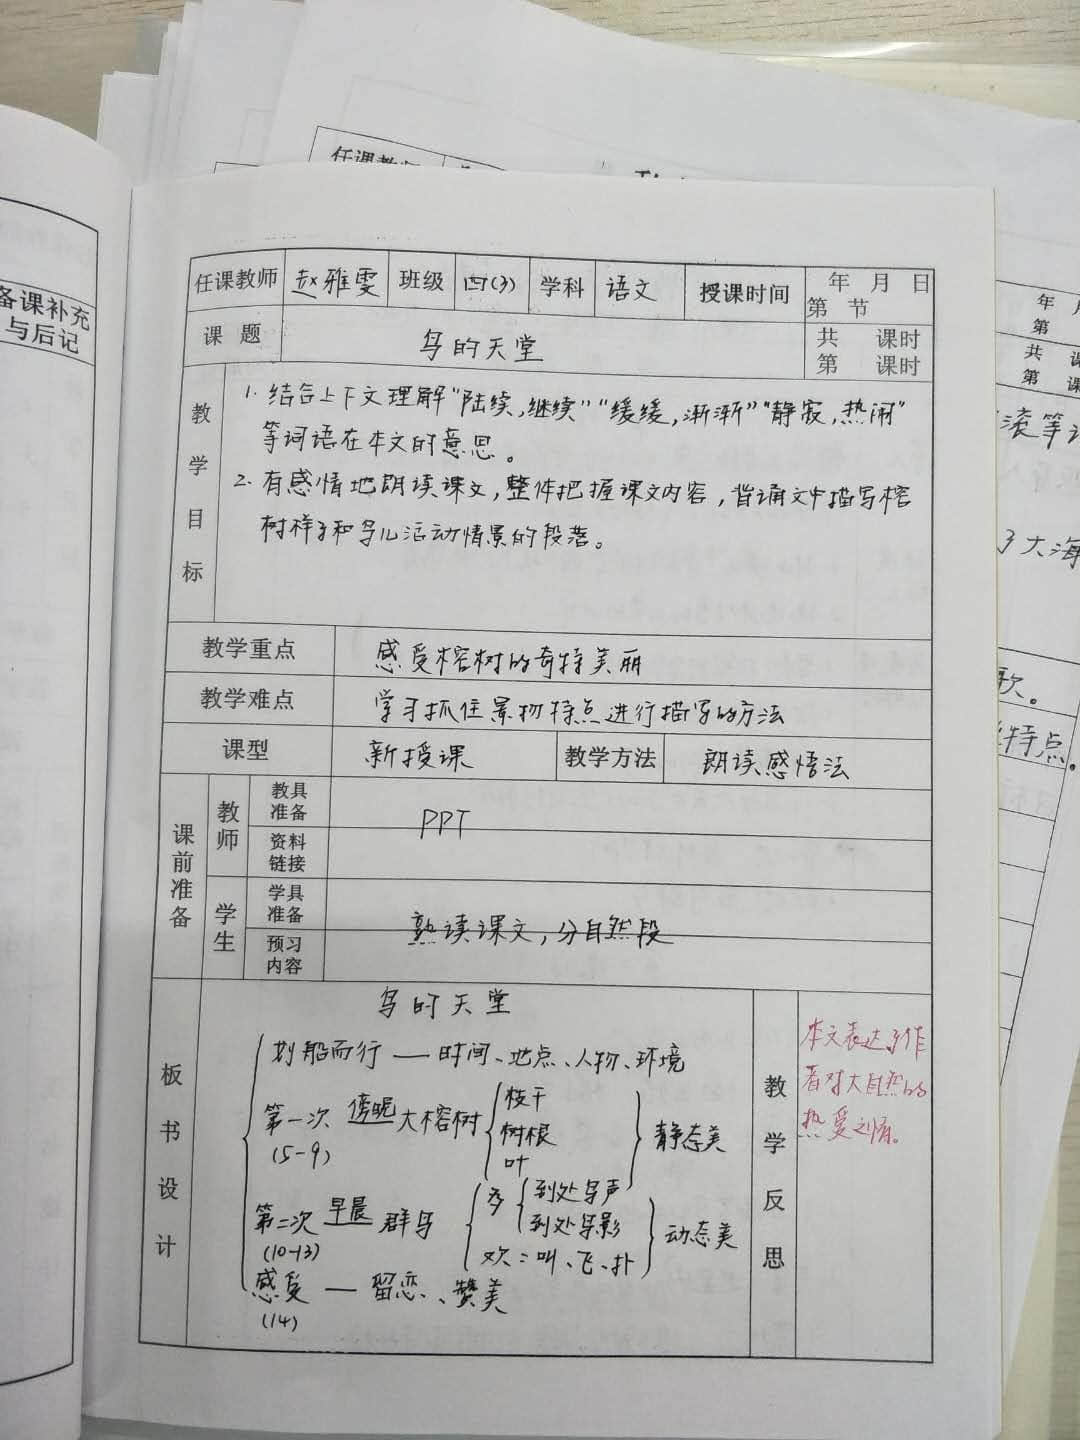 任课教
备课补充
与后记
任课教师 赵雅雯 班级 四(3) 学科 语文 授课时间 年 月 日
第 节
课 题 鸟的天堂 共 课时
第 课时
教学目标
1. 结合上下文理解"陆续,继续""缓缓,渐渐""静寂,热闹"
等词语在本文的意思。
2. 有感情地朗读课文,整体把握课文内容,背诵文中描写榕
树样子和鸟儿活动情景的段落。
教学重点 感受榕树的奇特美丽
教学难点 学习抓住景物特点进行描写的方法
课型 新授课 教学方法 朗读感悟法
课前准备
教师
教具准备
PPT
资料链接
学生
学具准备
熟读课文,分自然段
预习内容
板书设计
鸟的天堂
划船而行 — 时间、地点、人物、环境
第一次 傍晚 大榕树 枝干
树根
叶
静态美
(5-9)
第二次 早晨 群鸟 多 到处鸟声
到处鸟影
欢:叫、飞、扑
动态美
(10-13)
感受 — 留恋、赞美
(14)
教学反思
本文表达了作
者对大自然的
热爱之情。
年 月
第
共 课
第 课
滚等
了大海
歌。
特点。